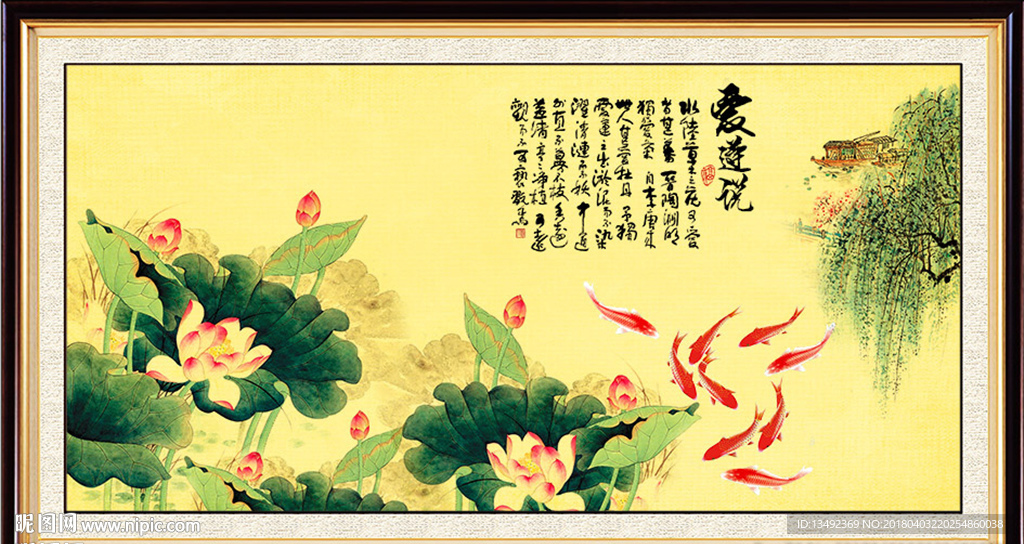 愛蓮说
水陸草木之花可愛
者甚蕃 晋陶渊明
獨愛菊 自李唐来
世人甚愛牡丹 予獨
愛蓮之出淤泥而不染
濯清漣而不妖 中通
外直不蔓不枝香遠
益清亭亭净植可遠
觀而不可褻玩焉
昵图网 www.nipic.com
ID:13492369 NO:20180403220254860038